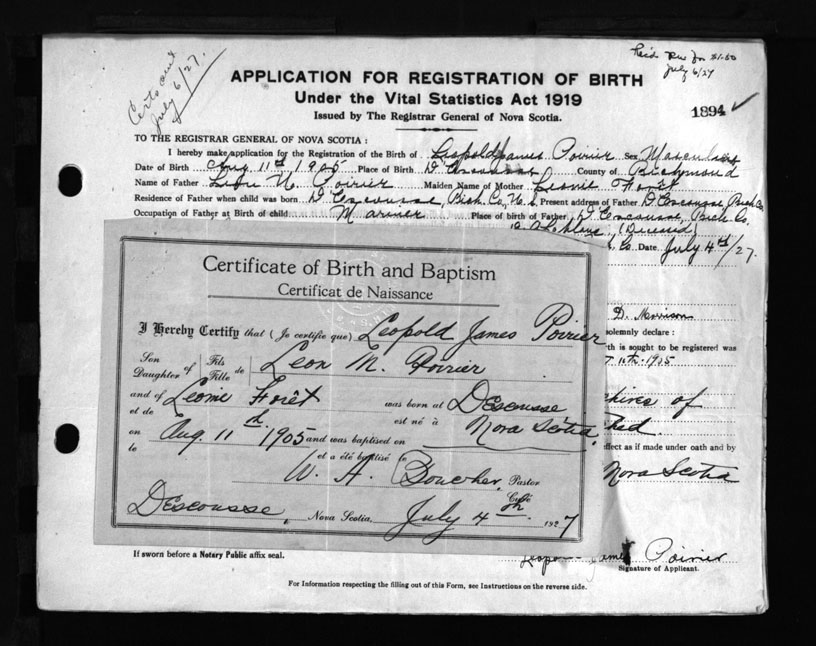 Certs out
July 6/27.
July 6/27
APPLICATION FOR REGISTRATION OF BIRTH
Under the Vital Statistics Act 1919
Issued by The Registrar General of Nova Scotia.
1894
TO THE REGISTRAR GENERAL OF NOVA SCOTIA:
I hereby make application for the Registration of the Birth of Leopold James Poirier Sex Masculine
Date of Birth Aug 11th 1905 Place of Birth D'Escousse County of Richmond
Name of Father Leon M. Poirier Maiden Name of Mother Leonie Forêt
Residence of Father when child was born D'Escousse, Rich. Co. N.S. Present address of Father D'Escousse, Rich Co.
Occupation of Father at Birth of child Mariner Place of birth of Father D'Escousse, Rich. Co.
(Deceased)
Co. Date July 4th/27.
Certificate of Birth and Baptism
Certificat de Naissance
I Hereby Certify that (Je certifie que) Leopold James Poirier
Son Daughter of Fils Fille de Leon M. Poirier
and of et de Leonie Forêt was born at est né à Descousse
Nova Scotia.
on le Aug. 11th 1905 and was baptised on et a été baptisé le
W. A. Boucher, Pastor Curé
Descousse, Nova Scotia. July 4th. 1927
D. Morrison
solemnly declare :
rth is sought to be registered was
10th 1905
chives of
ched.
ffect as if made under oath and by
Nova Scotia
If sworn before a Notary Public affix seal.
James Poirier
Signature of Applicant.
For Information respecting the filling out of this Form, see Instructions on the reverse side.